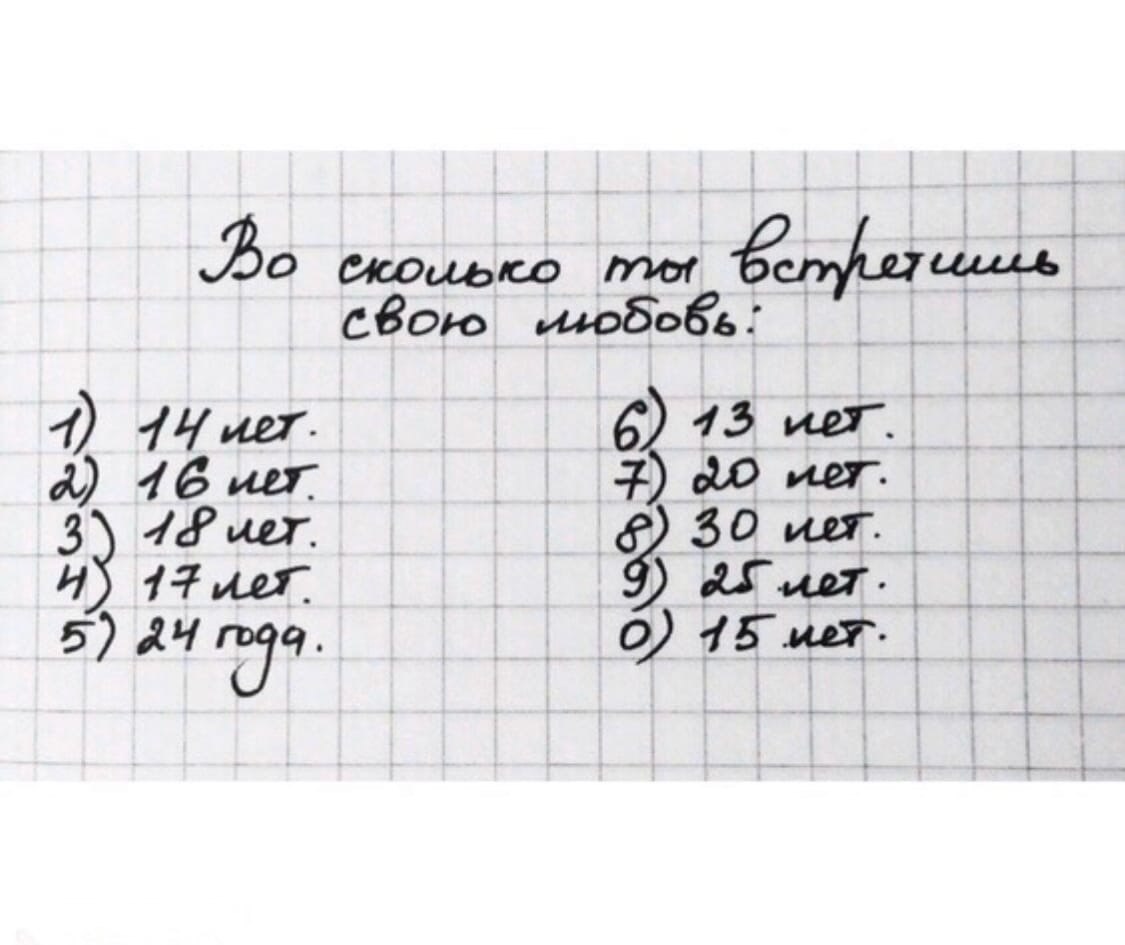 Во сколько ты встретишь
свою любовь:
1) 14 лет.
2) 16 лет.
3) 18 лет.
4) 17 лет.
5) 24 года.
6) 13 лет.
7) 20 лет.
8) 30 лет.
9) 25 лет.
0) 15 лет.